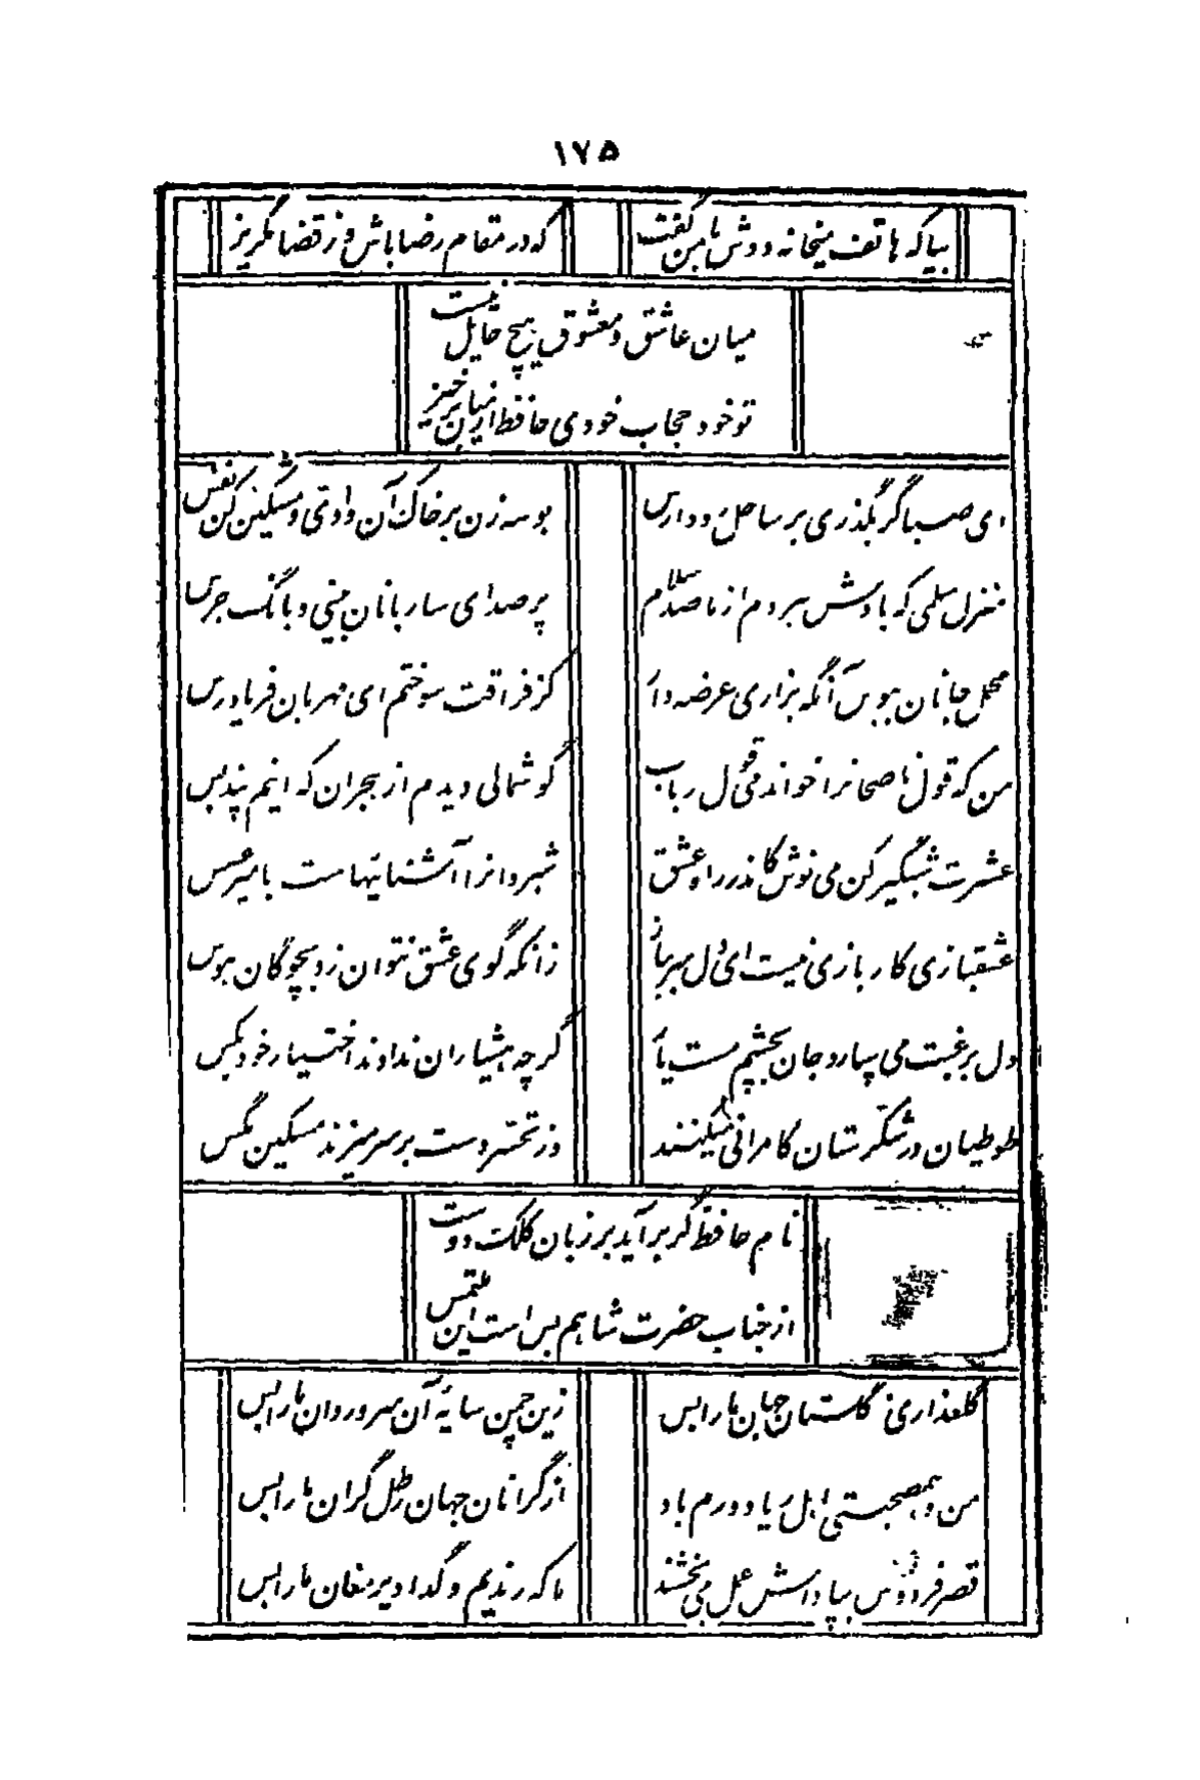 ۱۷۵
بیا که هاتف میخانه دوش با من گفت
که در مقام رضا باش و ز قضا مگریز
میان عاشق و معشوق هیچ حایل نیست
تو خود حجاب خودی حافظ از میان برخیز
ای صبا گر بگذری بر ساحل رود ارس
بوسه زن بر خاک آن وادی و مشکین کن نفس
منزل سلمی که بادش هر دم از ما صد سلام
پر صدای ساربانان بینی و بانگ جرس
محمل جانان ببوس آنگه بزاری عرضه دار
کز فراقت سوختم ای مهربان فریاد رس
من که قول ناصحانرا خواندمی قول رباب
گوشمالی دیدم از هجران که اینم پند بس
عشرت شبگیر کن می نوش کاندر راه عشق
شبروانرا آشنائیهاست با میر عسس
عشقبازی کار بازی نیست ای دل سر بباز
زانکه گوی عشق نتوان زد بچوگان هوس
دل برغبت می سپارد جان بچشم مست یار
گرچه هشیاران ندادند اختیار خود بکس
طوطیان در شکرستان کامرانی میکنند
وز تحسر دست بر سر میزند مسکین مگس
نام حافظ گر برآید بر زبان کلک دوست
از جناب حضرت شاهم بس است این ملتمس
گلعذاری ز گلستان جهان ما را بس
زین چمن سایه آن سرو روان ما را بس
من و همصحبتی اهل ریا دورم باد
از گرانان جهان رطل گران ما را بس
قصر فردوس بپاداش عمل می بخشند
ما که رندیم و گدا دیر مغان ما را بس